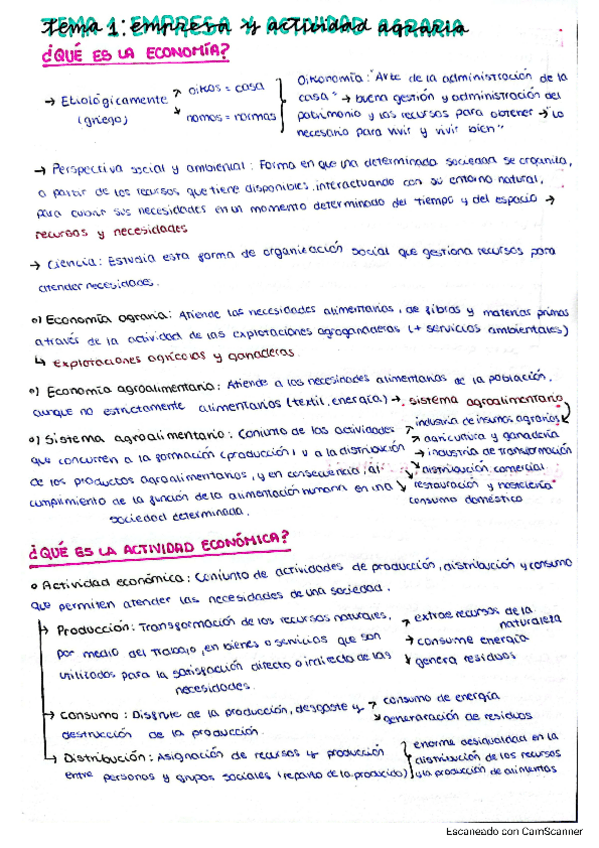 Tema 1: empresa y actividad agraria
¿QUÉ ES LA ECONOMÍA?
→ Etiológicamente (griego) ↗ oikos = casa ↘ nomos = normas
Oikonomía: "Arte de la administración de la
casa" → buena gestión y administración del
patrimonio y los recursos para obtener → "lo
necesario para vivir y vivir bien"
→ Perspectiva social y ambiental: Forma en que una determinada sociedad se organiza,
a partir de los recursos que tiene disponibles, interactuando con su entorno natural,
para cubrir sus necesidades en un momento determinado del tiempo y del espacio →
recursos y necesidades
→ Ciencia: Estudia esta forma de organización social que gestiona recursos para
atender necesidades.
o) Economía agraria: Atiende las necesidades alimentarias, de fibras y materias primas
a través de la actividad de las explotaciones agroganaderas (+ servicios ambientales)
↳ Explotaciones agrícolas y ganaderas
o) Economía agroalimentaria: Atiende a las necesidades alimentarias de la población,
aunque no estrictamente alimentarias (textil, energía) → sistema agroalimentario
o) Sistema agroalimentario: Conjunto de las actividades
que concurren a la formación (producción) y a la distribución
de los productos agroalimentarios, y en consecuencia, al
cumplimiento de la función de la alimentación humana en una
sociedad determinada.
↗ industria de insumos agrarios
↗ agricultura y ganadería
→ industria de transformación
↘ distribución comercial
↘ restauración y hostelería
consumo doméstico
¿QUÉ ES LA ACTIVIDAD ECONÓMICA?
o Actividad económica: Conjunto de actividades de producción, distribución y consumo
que permiten atender las necesidades de una sociedad.
→ Producción: Transformación de los recursos naturales,
por medio del trabajo, en bienes o servicios que son
utilizados para la satisfacción directa o indirecta de las
necesidades.
↗ extrae recursos de la
naturaleza
→ consume energía
↘ genera residuos
→ Consumo: Disfrute de la producción, desgaste y
destrucción de la producción.
↗ consumo de energía
↘ generación de residuos
→ Distribución: Asignación de recursos y producción
entre personas y grupos sociales (reparto de lo producido)
enorme desigualdad en la
distribución de los recursos
y la producción de alimentos
Escaneado con CamScanner